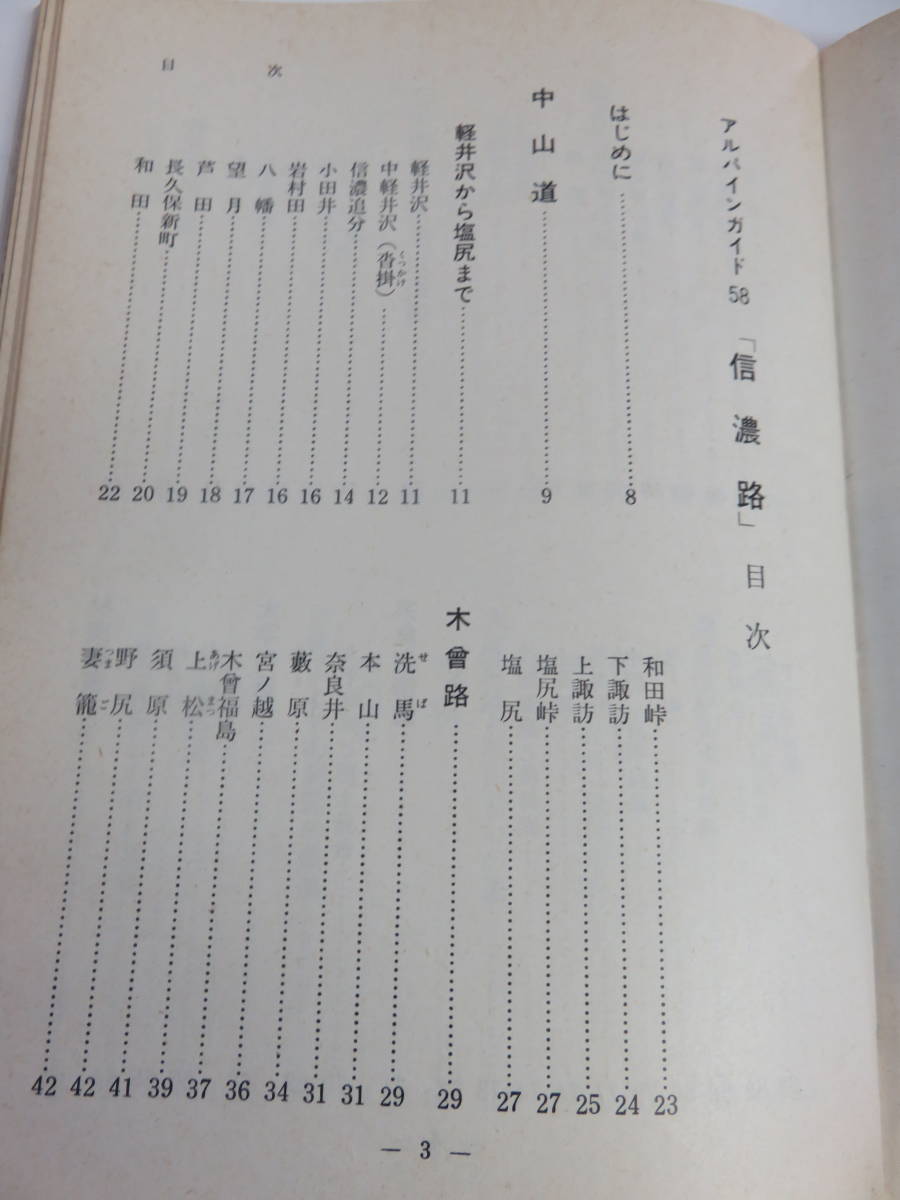 目次
アルパインガイド58「信濃路」目次
はじめに……8
中山道……9
軽井沢から塩尻まで……11
軽井沢……11
中軽井沢（沓掛くつかけ）……12
信濃追分……14
小田井……16
岩村田……16
八幡……17
望月……18
芦田……19
長久保新町……20
和田……22
和田峠……23
下諏訪……24
上諏訪……25
塩尻峠……27
塩尻……27
木曾路……29
洗馬せば……29
本山……31
奈良井……31
藪原……34
宮ノ越……36
木曾福島……37
上松あげまつ……39
須原……41
野尻……42
妻籠つまご……42
— 3 —